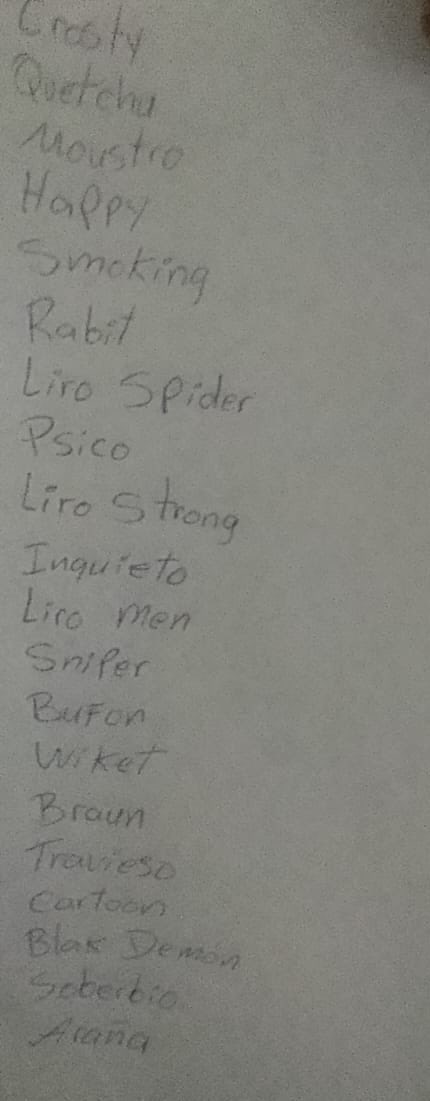 Crosty
Quetchu
Moustro
Happy
Smoking
Rabit
Liro Spider
Psico
Liro Strong
Inquieto
Liro men
Sniper
Bufon
Wiket
Braun
Travieso
Cartoon
Blak Demon
Soberbio
Araña